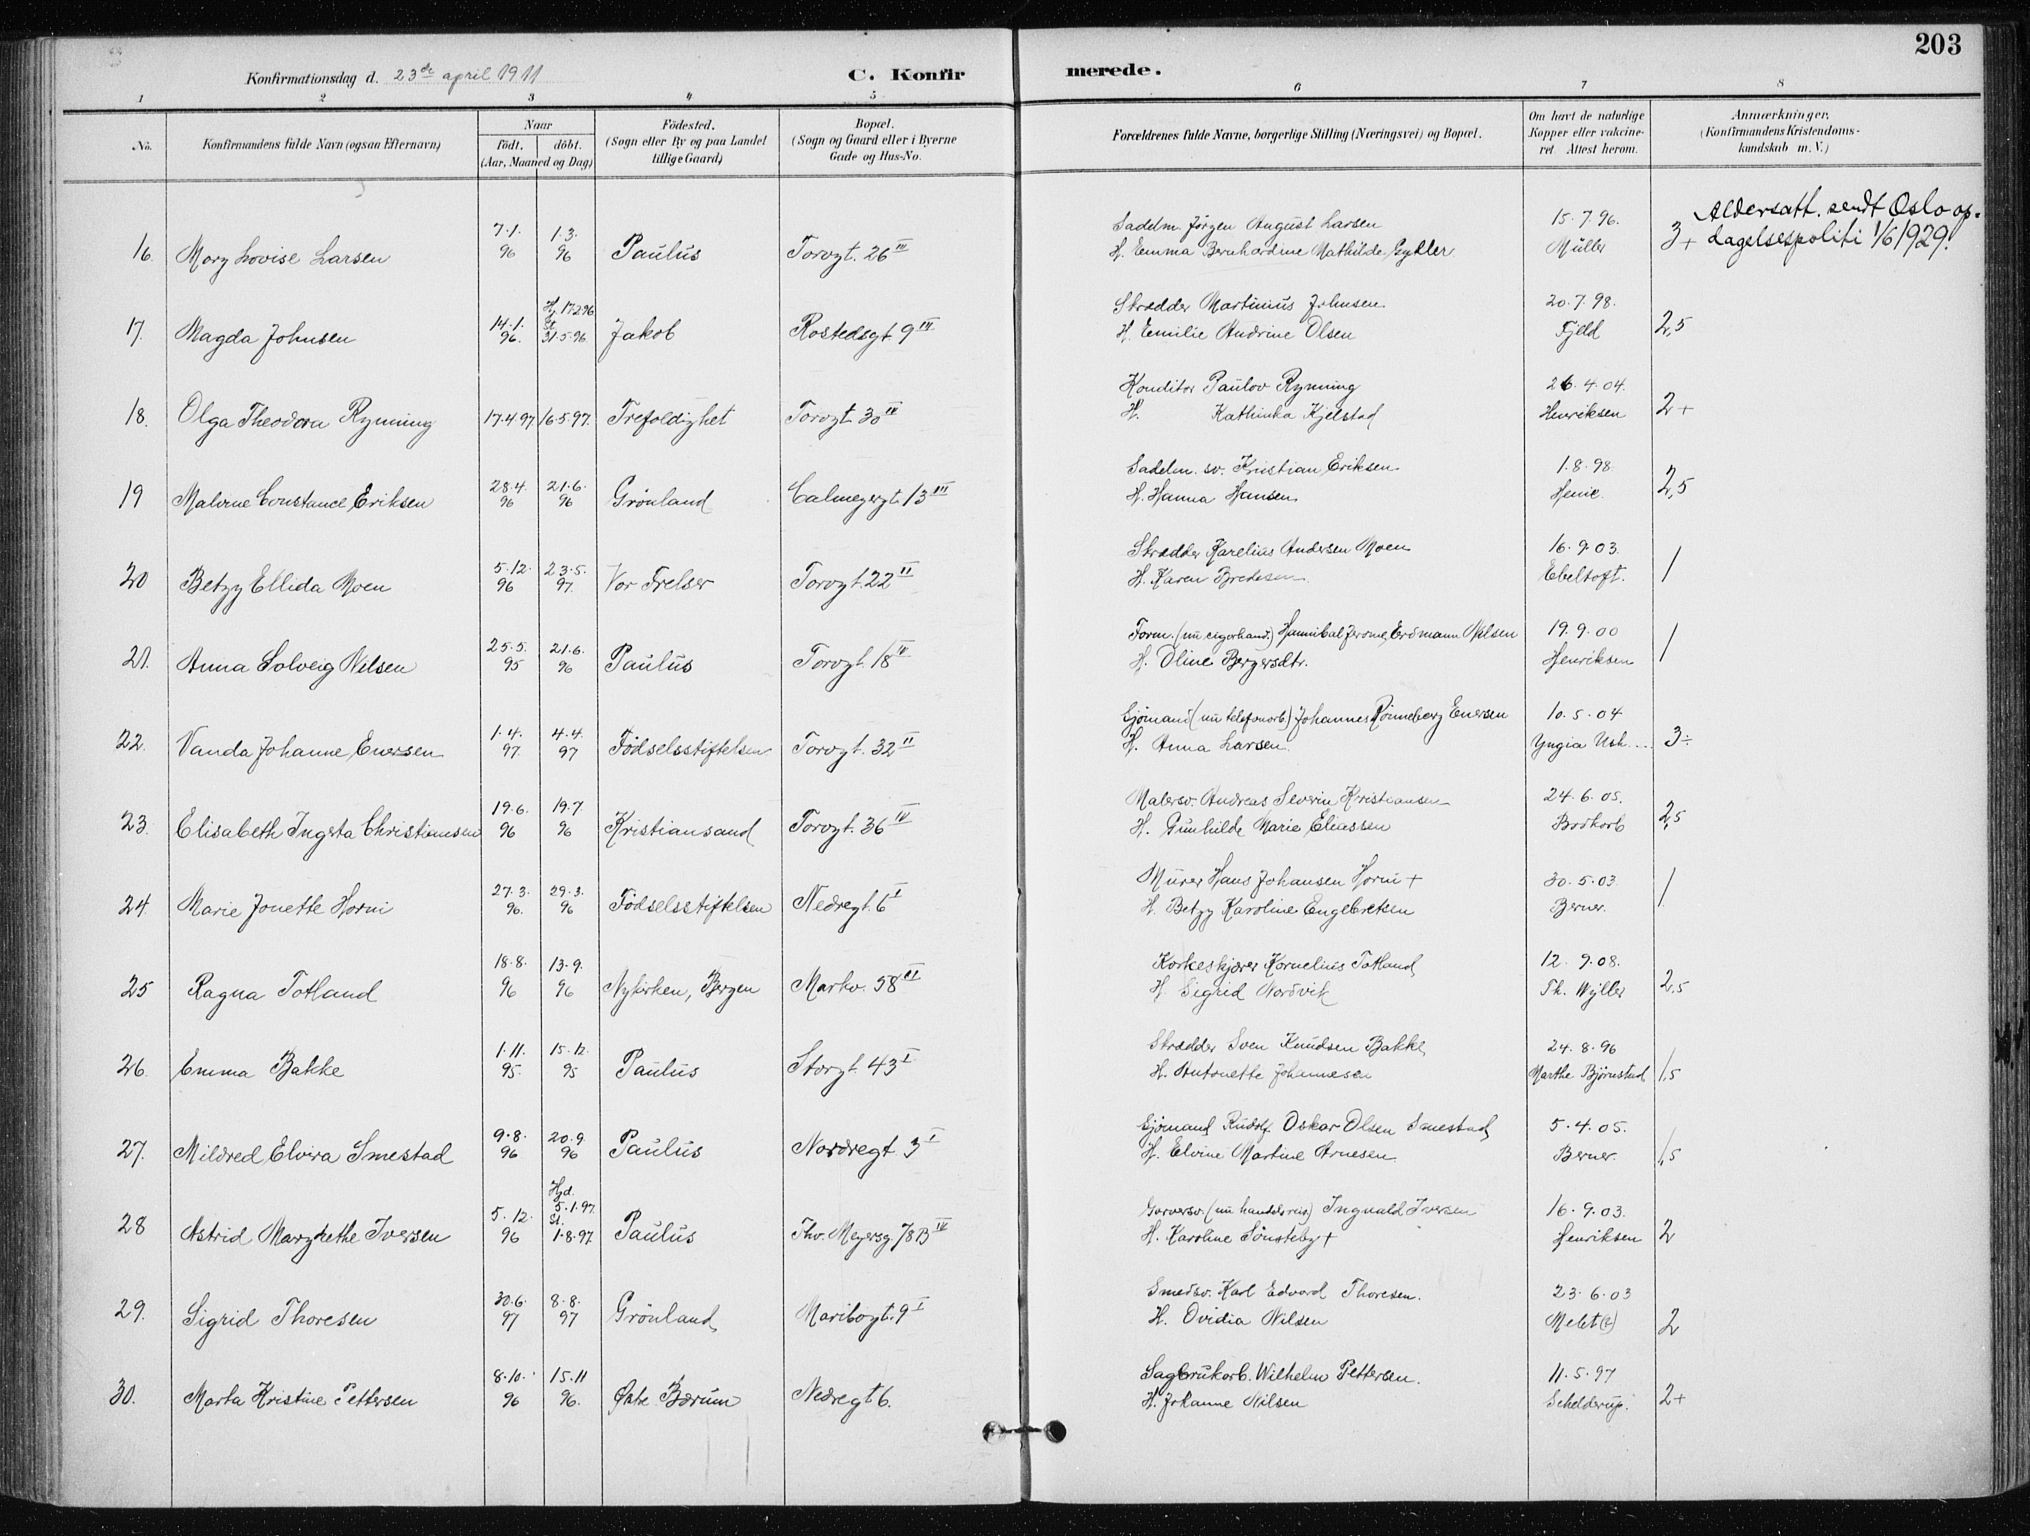 203
Konfirmationsdag d. 23de april 1911
C. Konfirmerede.
1 2 3 4 5 6 7 8
No. | Konfirmandens fulde Navn (ogsaa Efternavn) | Naar födt. döbt. (Aar, Maaned og Dag) | Födested. (Sogn eller By og paa Landet tillige Gaard) | Bopæl. (Sogn og Gaard eller i Byerne Gade og Hus-No. | Forældrenes fulde Navne, borgerlige Stilling (Næringsvei) og Bopæl. | Om havt de naturlige Kopper eller vakcineret. Attest herom. | Anmærkninger. (Konfirmandens Kristendomskundskab m. V.)
16. Mary Lovise Larsen | 7.1. 96 | 1.3. 96 | Paulus | Torvgt. 26 III | Sadelm. Jørgen August Larsen
H. Emma Bernhardine Mathilde Gykler | 15.7.96. Müller | 3+ | Aldersatt. sendt Oslo opdagelsespoliti 1/6 1929.
17. Magda Johnsen | 14.1. 96. | Hj. 17.2.96 St. 31.5.96 | Jakob | Rostedsgt. 9 III | Skrædder Martinius Johnsen
H. Emilie Andrine Olsen | 20.7.98. Fjeld | 2,5
18. Olga Theodora Rynning | 17.4.97 | 16.5.97. | Trefoldighet | Torvgt. 30 IV | Konditor Paulov Rynning
H. Kathinka Kjelstad | 26.4.04. Henriksen | 2+
19 Malvine Constance Eriksen | 28.4. 96 | 21.6. 96 | Grönland | Calmeyergt. 13 III | Sadelm. sv. Kristian Eriksen
H. Hanna Hansen | 1.8.98. Henie. | 2,5
20 Betzy Ellida Moen | 5.12. 96 | 23.5. 97. | Vor Frelser | Torvgt. 22 II | Skrædder Karelius Andersen Moen
H. Karen Bredesen | 16.9.03. Ebeltoft. | 1
21. Anna Solveig Nilsen | 25.5. 95 | 21.6. 96 | Paulus | Torvgt. 18 IV | Form. (nu cigarhand.) Hannibal Jerome Erdmann Nilsen
H. Oline Bergersdtr. | 19.9.00 Henriksen | 1
22. Vanda Johanne Enersen | 1.4. 97. | 4.4. 97 | Födselsstiftelsen | Torvgt. 32 II | Sjömand (nu telefonarb.) Johannes Rönneberg Enersen
H. Anna Larsen. | 10.5.04 | 3÷
23. Elisabeth Ingeta Christiansen | 19.6. 96 | 19.7. 96 | Kristiansand | Torvgt. 36 IV | Malersv. Andreas Severin Kristiansen
H. Gunhilde Marie Eliassen | 24.6.05. Brodkorb | 2,5
24. Marie Jonette Horni | 27.3. 96. | 29.3. 96 | Födselsstiftelsen | Nedregt. 6 I | Murer Hans Johansen Horni +
H. Betzy Karoline Engebretsen | 30.5.03. Berner. | 1
25 Ragna Totland | 18.8. 96 | 13.9. 96 | Nykirken, Bergen | Markv. 58 III | Korkeskjærer Kornelius Totland
H. Sigrid Nordvik | 12.9.08. Th. Wyller | 2,5
26. Emma Bakke | 1.11. 95. | 15.12. 95 | Paulus | Storgt. 43 I | Skrædder Sven Knudsen Bakke
H. Antonette Johannesen | 24.8.96 Marthe Bjørnstad | 1,5
27. Mildred Elvira Smestad | 9.8. 96 | 20.9. 96 | Paulus | Nordregt. 3 I | Sjömand Rudolf Oskar Olsen Smestad
H. Elvine Martine Arnesen | 5.4.05. Berner. | 1,5
28 Astrid Margrethe Iversen | 5.12. 96 | Hjd. 5.1.97. St. 1.8.97. | Paulus | Thv. Meyersg. 78 B IV | Garversv. (nu handelsreis.) Ingvald Iversen
H. Karoline Sönsteby + | 16.9.03. Henriksen | 2
29. Sigrid Thoresen | 30.6. 97 | 8.8. 97 | Grönland | Maribogt. 9 I | Smedsv. Karl Edvard Thoresen.
H. Ovidia Nilsen | 23.6.03 | 2
30. Marta Kristine Pettersen | 8.10. 96 | 15.11 96. | Østre Bærum | Nedregt. 6. | Sagbrukarb. Wilhelm Pettersen.
H. Johanne Nilsen | 11.5.97 Schelderup. | 2+